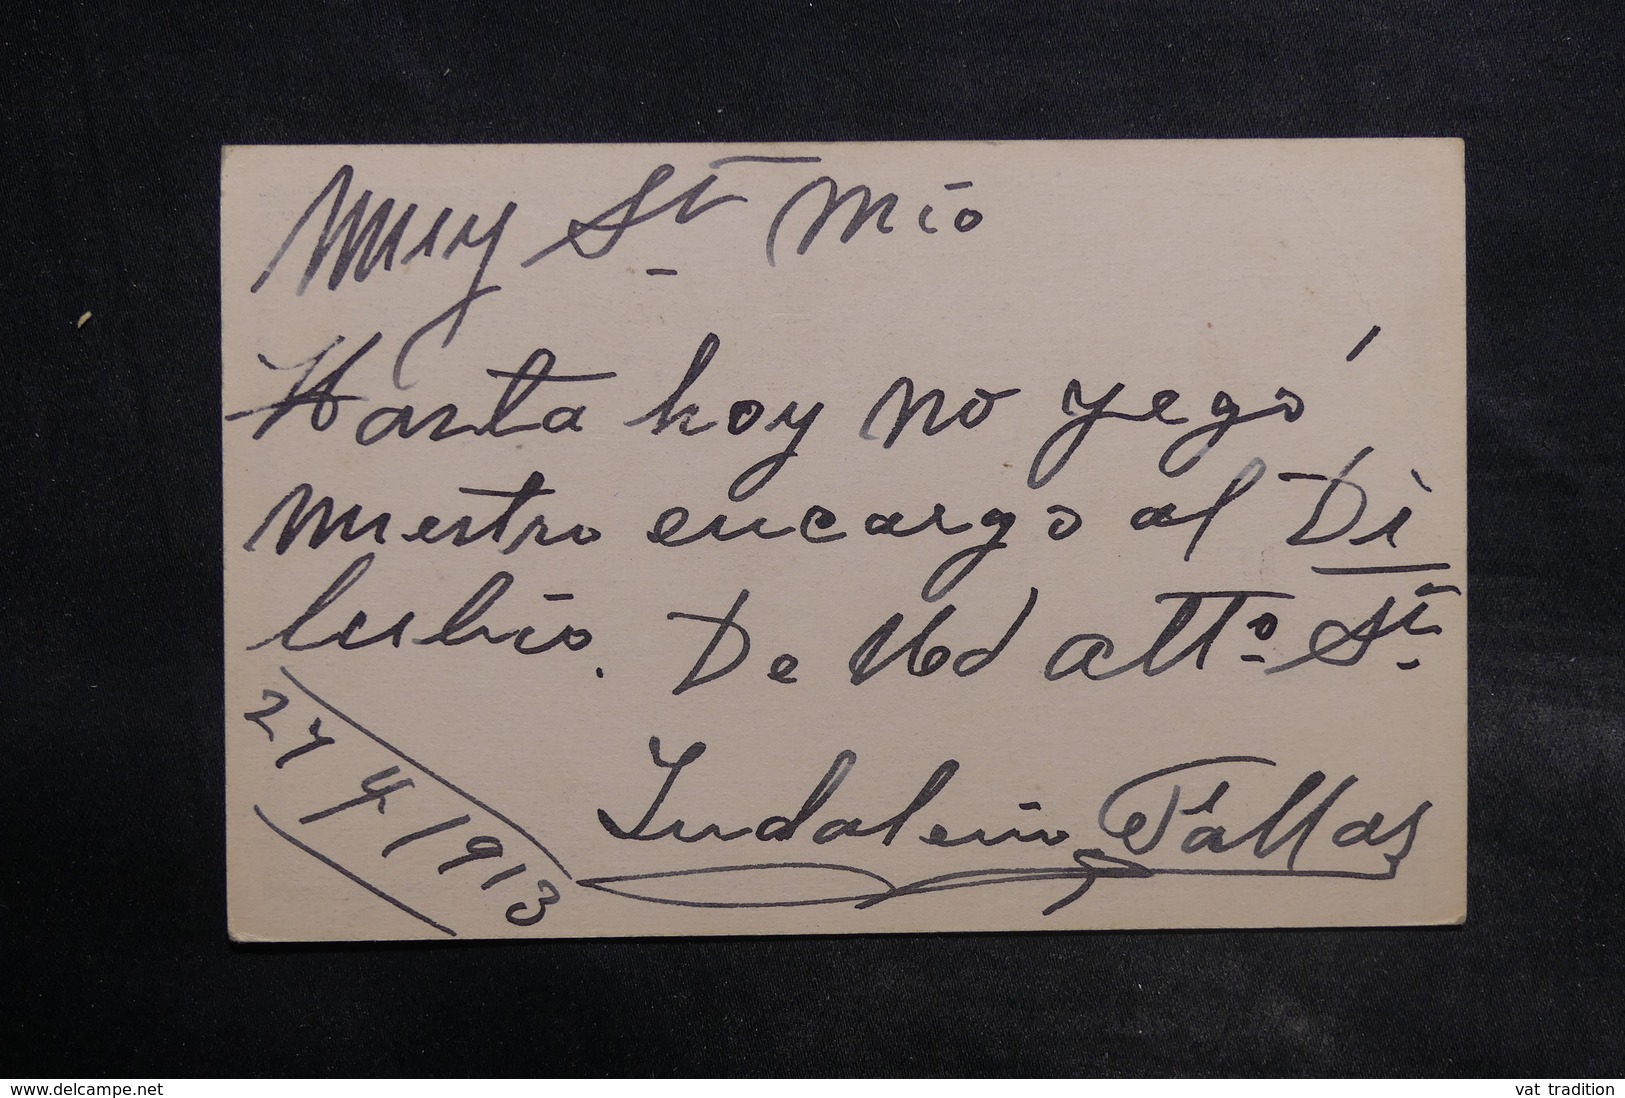 Muy Sr. Mio
Hasta hoy no yegó
nuestro encargo al Di
lubio. De Vbd atto. Sr.
Indalecio Pallas
27/4/1913
www.delcampe.net
vat tradition